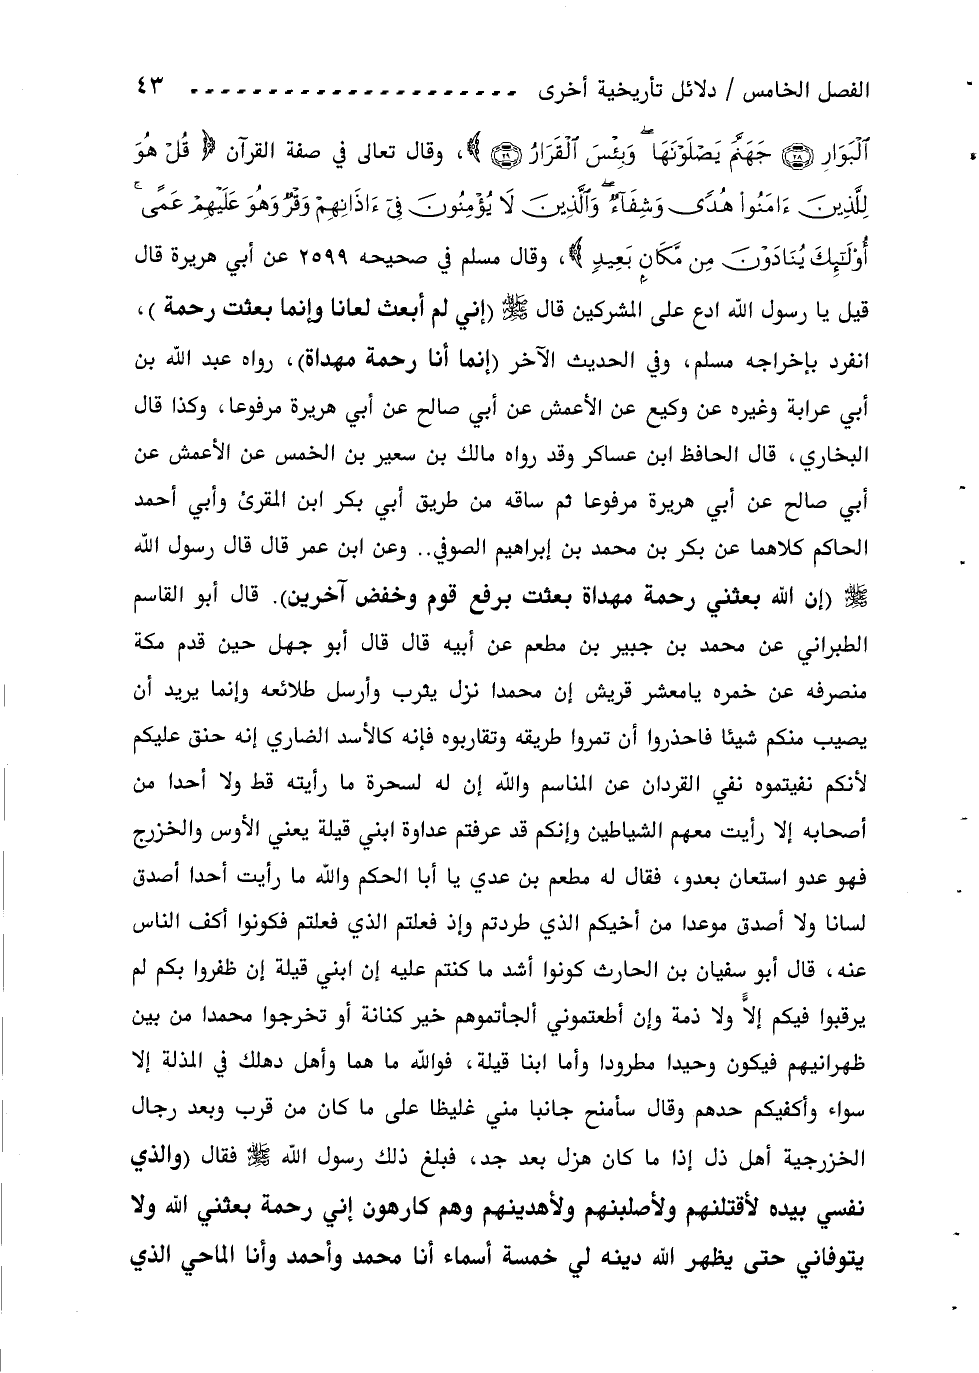 الفصل الخامس / دلائل تأريخية أخرى ‎- - - - - - - - - - - - - - - - - - - - -‎ ٤٣
ٱلْبَوَارِ ۝٢٨ جَهَنَّمَ يَصْلَوْنَهَا ۖ وَبِئْسَ ٱلْقَرَارُ ۝٢٩ ﴾، وقال تعالى في صفة القرآن ﴿ قُلْ هُوَ
لِلَّذِينَ ءَامَنُوا۟ هُدًى وَشِفَآءٌ ۖ وَٱلَّذِينَ لَا يُؤْمِنُونَ فِىٓ ءَاذَانِهِمْ وَقْرٌ وَهُوَ عَلَيْهِمْ عَمًى ۚ
أُو۟لَٰٓئِكَ يُنَادَوْنَ مِن مَّكَانٍۭ بَعِيدٍ ﴾، وقال مسلم في صحيحه ٢٥٩٩ عن أبي هريرة قال
قيل يا رسول الله ادع على المشركين قال ﷺ (إني لم أبعث لعانا وإنما بعثت رحمة )،
انفرد بإخراجه مسلم، وفي الحديث الآخر (إنما أنا رحمة مهداة)، رواه عبد الله بن
أبي عرابة وغيره عن وكيع عن الأعمش عن أبي صالح عن أبي هريرة مرفوعا، وكذا قال
البخاري، قال الحافظ ابن عساكر وقد رواه مالك بن سعير بن الخمس عن الأعمش عن
أبي صالح عن أبي هريرة مرفوعا ثم ساقه من طريق أبي بكر ابن المقرئ وأبي أحمد
الحاكم كلاهما عن بكر بن محمد بن إبراهيم الصوفي.. وعن ابن عمر قال قال رسول الله
ﷺ (إن الله بعثني رحمة مهداة بعثت برفع قوم وخفض آخرين). قال أبو القاسم
الطبراني عن محمد بن جبير بن مطعم عن أبيه قال قال أبو جهل حين قدم مكة
منصرفه عن خمره يامعشر قريش إن محمدا نزل يثرب وأرسل طلائعه وإنما يريد أن
يصيب منكم شيئا فاحذروا أن تمروا طريقه وتقاربوه فإنه كالأسد الضاري إنه حنق عليكم
لأنكم نفيتموه نفي القردان عن المناسم والله إن له لسحرة ما رأيته قط ولا أحدا من
أصحابه إلا رأيت معهم الشياطين وإنكم قد عرفتم عداوة ابني قيلة يعني الأوس والخزرج
فهو عدو استعان بعدو، فقال له مطعم بن عدي يا أبا الحكم والله ما رأيت أحدا أصدق
لسانا ولا أصدق موعدا من أخيكم الذي طردتم وإذ فعلتم الذي فعلتم فكونوا أكف الناس
عنه، قال أبو سفيان بن الحارث كونوا أشد ما كنتم عليه إن ابني قيلة إن ظفروا بكم لم
يرقبوا فيكم إلاًّ ولا ذمة وإن أطعتموني ألجأتموهم خير كنانة أو تخرجوا محمدا من بين
ظهرانيهم فيكون وحيدا مطرودا وأما ابنا قيلة، فوالله ما هما وأهل دهلك في المذلة إلا
سواء وأكفيكم حدهم وقال سأمنح جانبا مني غليظا على ما كان من قرب وبعد رجال
الخزرجية أهل ذل إذا ما كان هزل بعد جد، فبلغ ذلك رسول الله ﷺ فقال (والذي
نفسي بيده لأقتلنهم ولأصلبنهم ولأهدينهم وهم كارهون إني رحمة بعثني الله ولا
يتوفاني حتى يظهر الله دينه لي خمسة أسماء أنا محمد وأحمد وأنا الماحي الذي